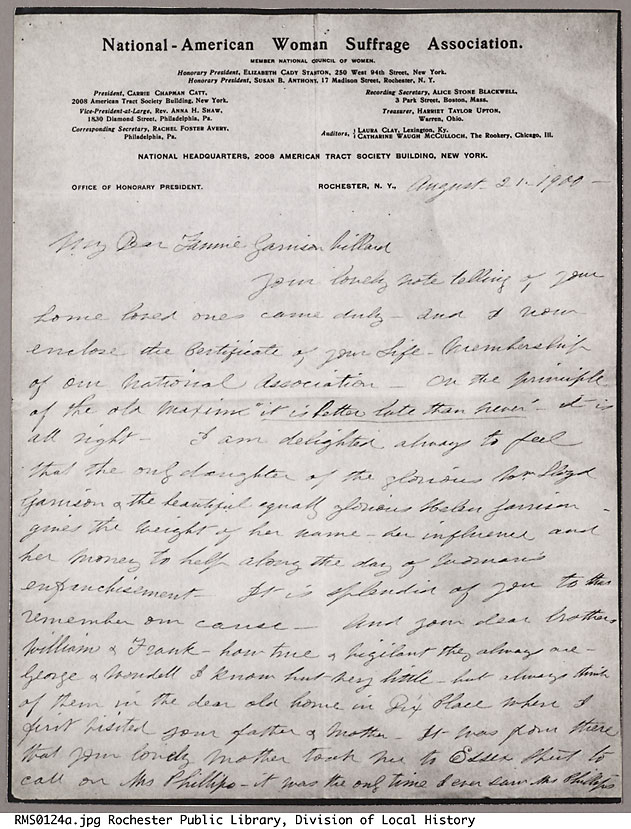 National-American Woman Suffrage Association.
MEMBER NATIONAL COUNCIL OF WOMEN.
Honorary President, ELIZABETH CADY STANTON, 250 West 94th Street, New York.
Honorary President, SUSAN B. ANTHONY, 17 Madison Street, Rochester, N. Y.
President, CARRIE CHAPMAN CATT,
2008 American Tract Society Building, New York.
Vice-President-at-Large, REV. ANNA H. SHAW,
1830 Diamond Street, Philadelphia, Pa.
Corresponding Secretary, RACHEL FOSTER AVERY,
Philadelphia, Pa.
Recording Secretary, ALICE STONE BLACKWELL,
3 Park Street, Boston, Mass.
Treasurer, HARRIET TAYLOR UPTON,
Warren, Ohio.
Auditors, { LAURA CLAY, Lexington, Ky.
CATHARINE WAUGH McCULLOCH, The Rookery, Chicago, Ill.
NATIONAL HEADQUARTERS, 2008 AMERICAN TRACT SOCIETY BUILDING, NEW YORK.
OFFICE OF HONORARY PRESIDENT. ROCHESTER, N. Y., August 21-1900-
My Dear Fannie Garrison Villard
Your lovely note telling of your
home loved ones came duly - and I now
enclose the Certificate of your Life-Membership
of our National Association - On the principle
of the old maxim "it is better late than never" - it is
all right - I am delighted always to feel
that the only daughter of the glorious Wm Lloyd
Garrison & the beautiful equally glorious Helen Garrison -
gives the weight of her name - her influence and
her money to help along the day of Woman's
enfranchisement - It is splendid of you to thus
remember our cause - And your dear brothers
William & Frank - how true & vigilant they always are -
George & Wendell I know but very little - but always think
of them in the dear old home in Dix Place where I
first visited your father & mother - It was from there
that your lovely mother took me to Essex Street to
call on Mrs Phillips - it was the only time I ever saw Mrs Phillips
RMS0124a.jpg Rochester Public Library, Division of Local History